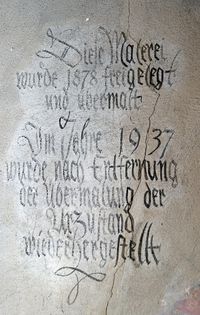 Diese Malerei
wurde 1878 freigelegt
und übermalt
Im Jahre 1937
wurde nach Entfernung
der Übermalung der
Urzustand
wiederhergestellt